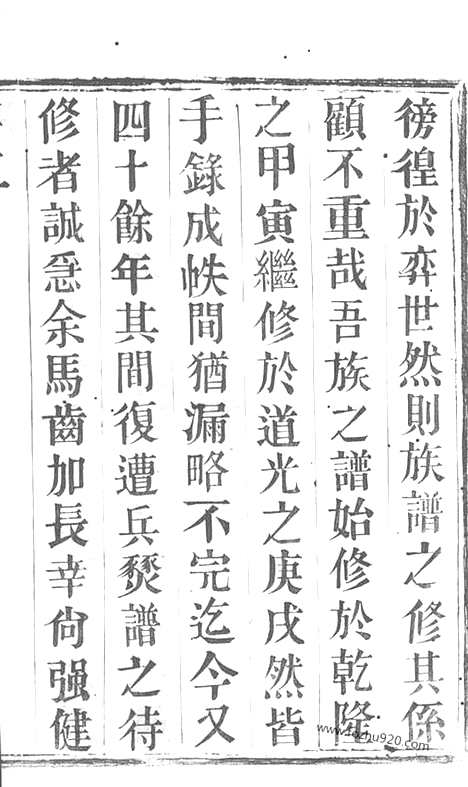 徬徨於弈世然則族譜之修其係
顧不重哉吾族之譜始修於乾隆
之甲寅繼修於道光之庚戌然皆
手錄成帙間猶漏略不完迄今又
四十餘年其間復遭兵燹譜之待
修者誠急余馬齒加長幸尙强健
www.fozhu920.com